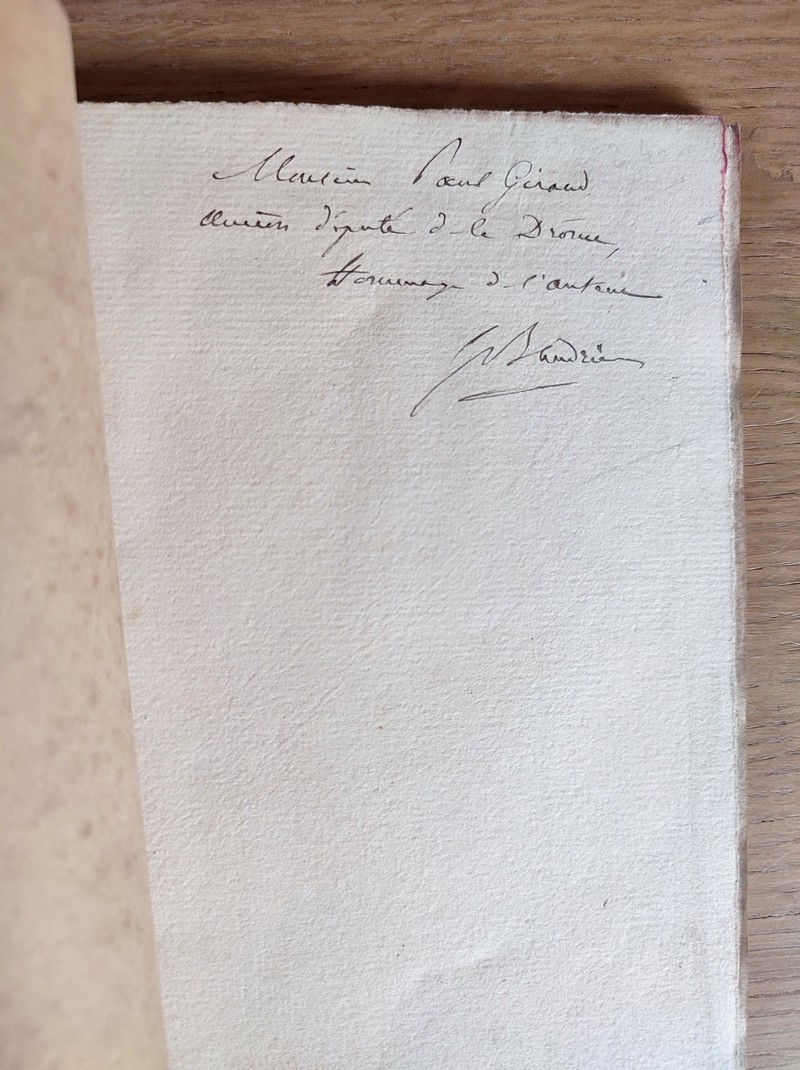 Monsieur Paul Giraud
ancien député de la Drôme,
Hommage de l'auteur